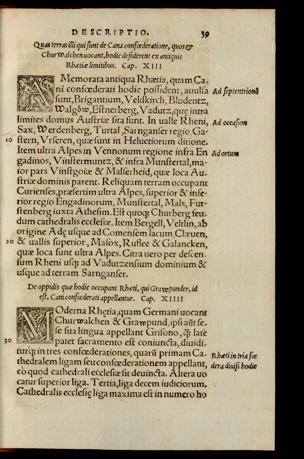 DESCRIPTIO. 39
Quas terras illi qui sunt de Cana confœderatione, quos &
Churwalchen uocant, hodie desiderent ex antiquis
Rhætiæ limitibus. Cap. XIII
A Memorata antiqua Rhætia, quam Ca-
ni confœderati hodie possident, auulsa
sunt, Brigantium, Veldkirch, Bludentz,
Walgöw, Estnerberg, Vadutz, quę intra
limites domus Austriæ sita sunt. In ualle Rheni,
Sax, Werdenberg, Turtal, Sarnganser regio Ga-
stern, Vrsern, quæ sunt in Heluetiorum ditione.
Item ultra Alpes in Vennonum regione infra En
gadinos, Vinstermuntz, & infra Munstertal, ma-
ior pars Vinstgoiæ & Malserheid, quæ loca Au-
striæ dominis parent. Reliquam terram occupant
Curienses, præsertim ultra Alpes, superior & infe-
rior regio Engadinorum, Munstertal, Mals, Fur-
stenberg iuxta Athesim. Est quoq; Churberg feu-
dum cathedralis ecclesiæ. Item Bergell, Veltlin, ab
origine Adę usque ad Comensem lacum. Clæuen,
20 & uallis superior, Masox, Ruflee & Galancken,
quæ loca sunt ultra Alpes. Citra uero per descen-
sum Rheni usq; ad Vadutzensium dominium &
usque ad terram Sarnganser.
Ad septentrionē
Ad occasum
Ad ortum
De oppidis que hodie occupant Rheti, qui Grawpunder, id
est, Cani confœderati appellantur. Cap. XIIII
MOderna Rhętia, quam Germani uocant
Churwalchen & Grawpund, ipsi aūt se-
se sua lingua appellant Grisono, q̃ late
30 patet sacramento est coniuncta, diuidi-
turq; in tres confœderationes, quarū primam Ca-
thedralem ligam seu confœderationem appellant,
eò quod cathedrali ecclesiæ sit deuincta. Altera uo
catur superior liga. Tertia, liga decem iudiciorum.
Cathedralis ecclesię liga maxima est in numero ho
Rhæti in tria fœ
dera diuisi hodie